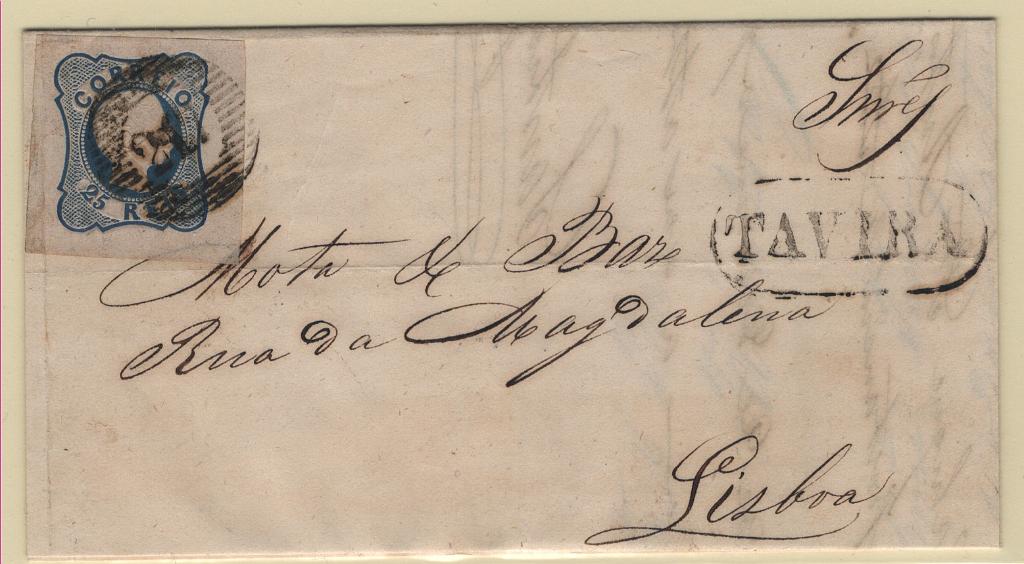 CORREIO
25 REIS
Snres
TAVIRA
Mota & Bar
Rua da Magdalena
Lisboa